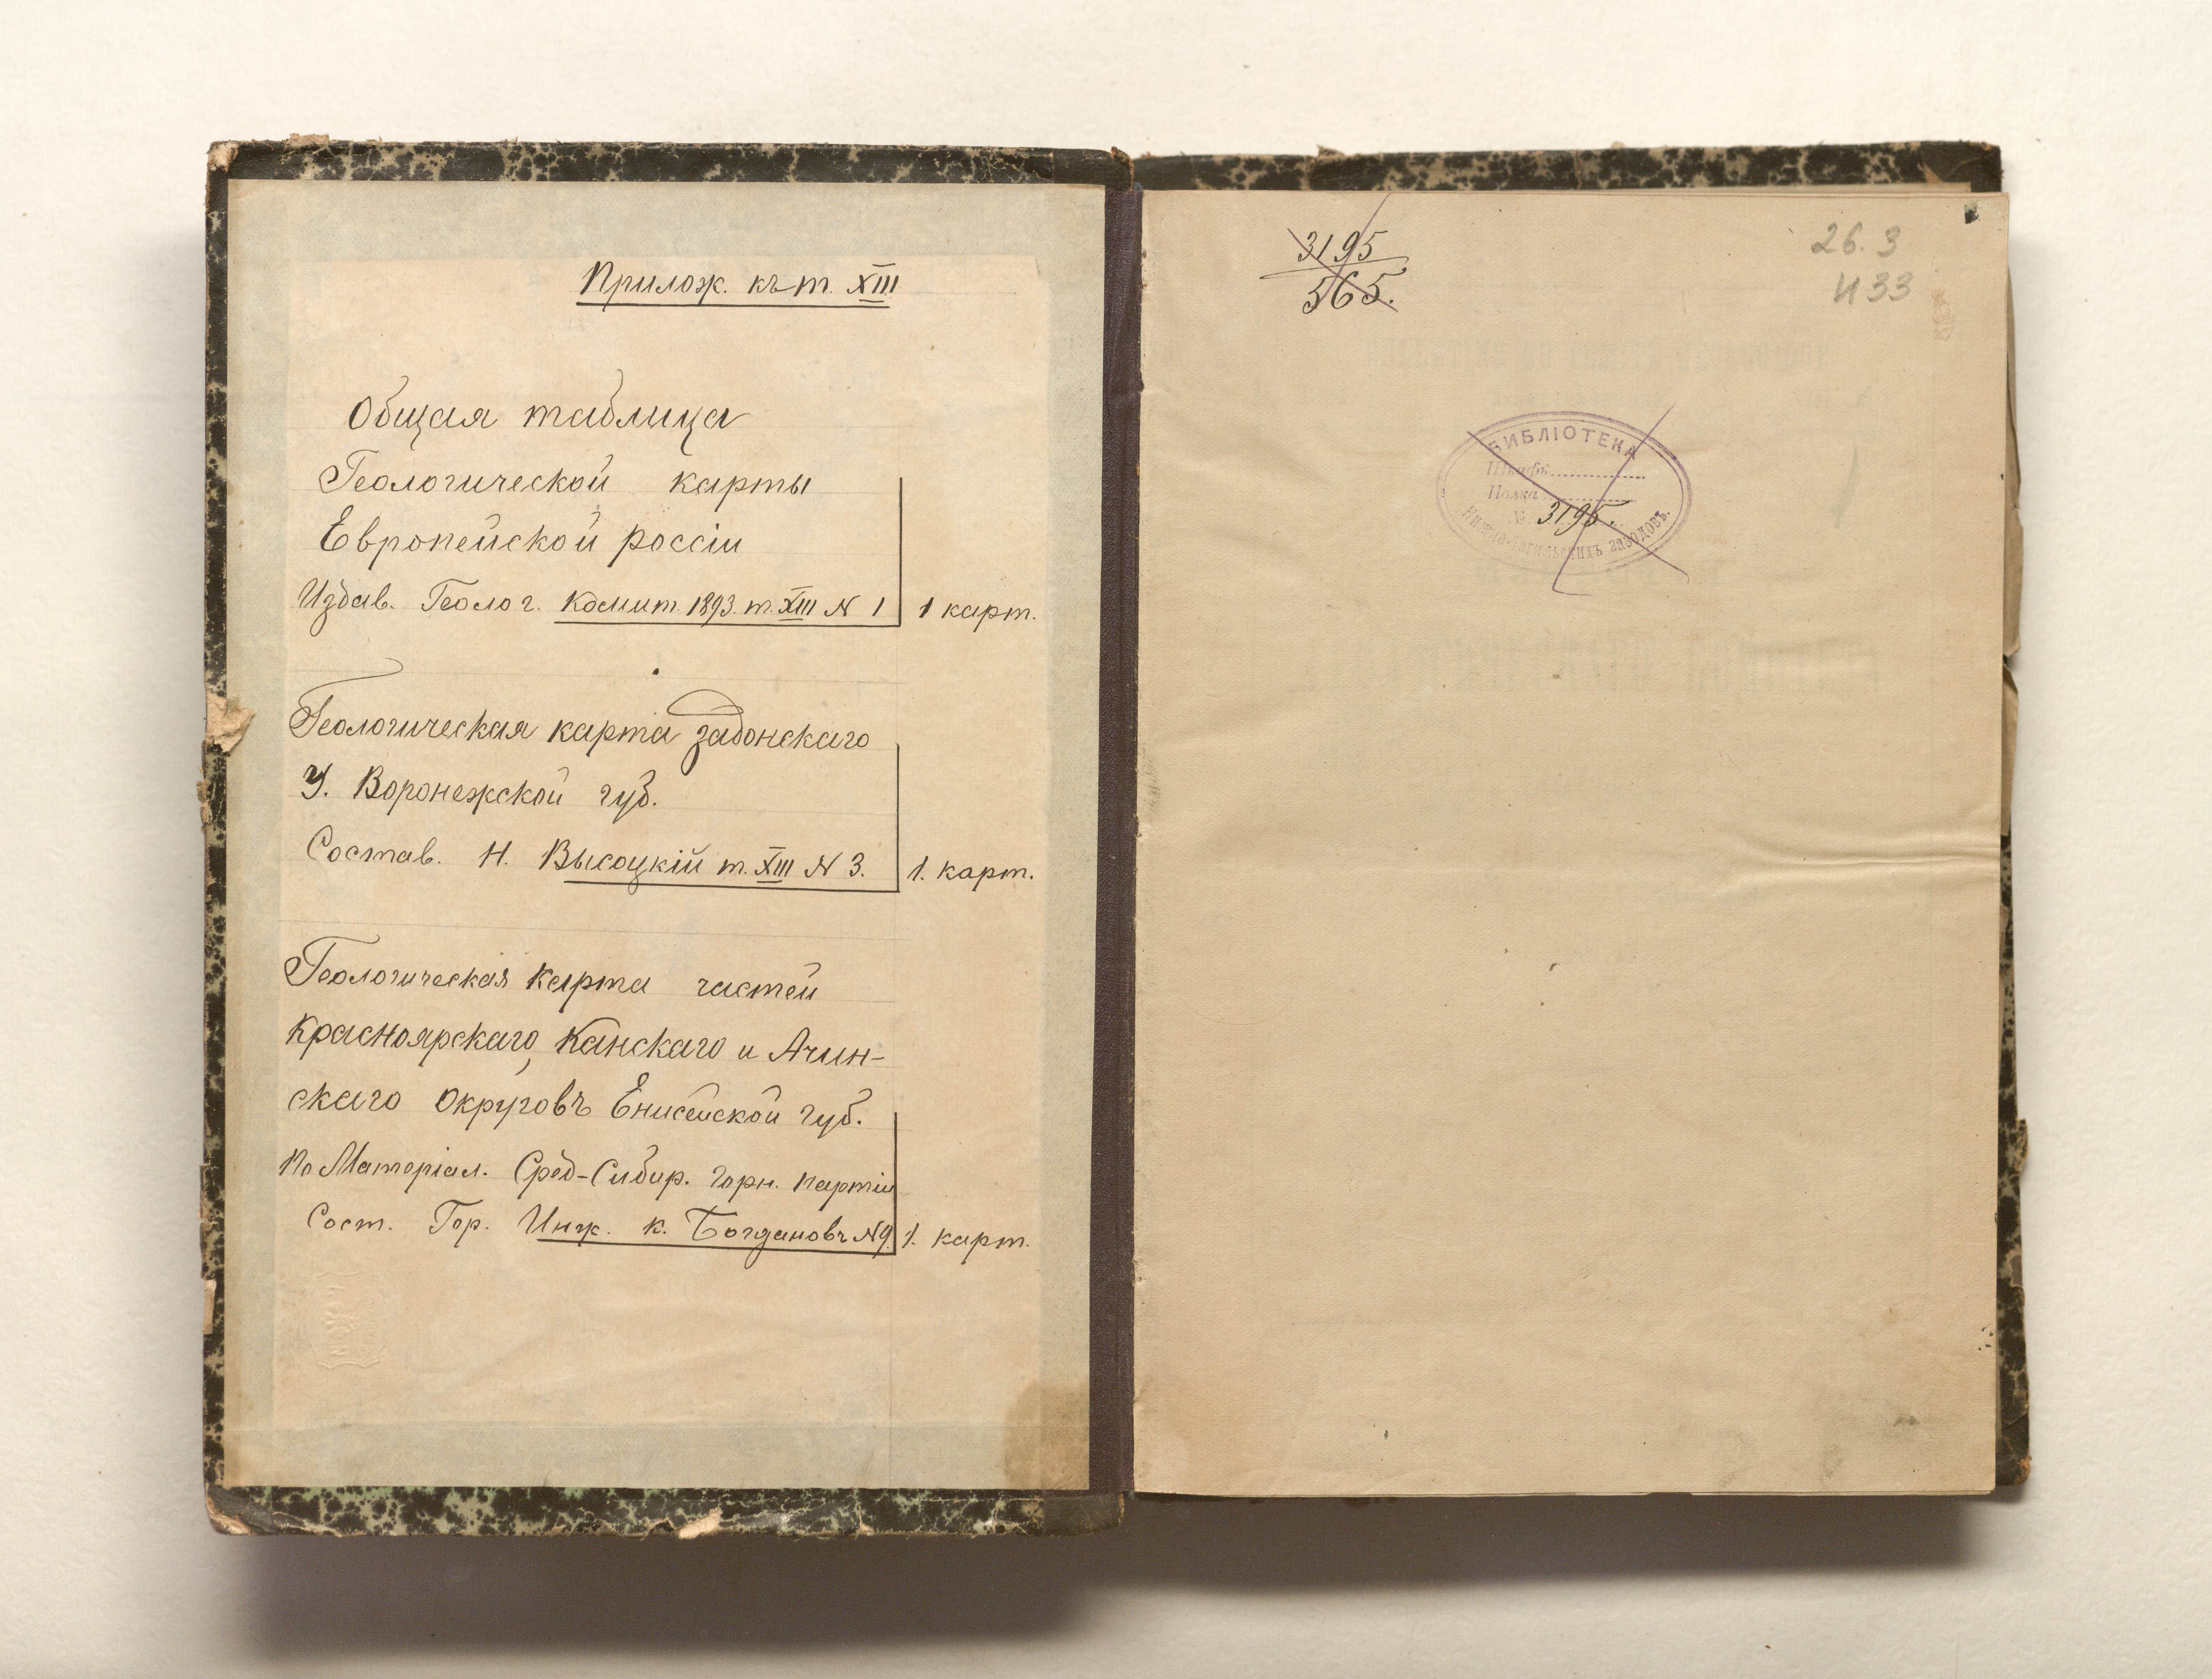 Прилож. къ т. XIII
Общая таблица
Геологической карты
Европейской россіи
Издав. Геолог. Комит. 1893. т. XIII N 1 1 карт.
Геологическая карта задонскаго
У. Воронежской губ.
Состав. Н. Высоцкій т. XIII N 3. 1. карт.
Геологическая карта частей
Красноярскаго, Канскаго и Ачин-
скаго округовъ Енисейской губ.
По Матеріал. Сред-Сибир. горн. партіи
Сост. Гор. Инж. К. Богдановъ N 9. 1. карт.
3195
565.
26.3
И 33
БИБЛІОТЕКА
Шкафъ
Полка
№ 3195.
Нижне-Тагильскихъ заводовъ.